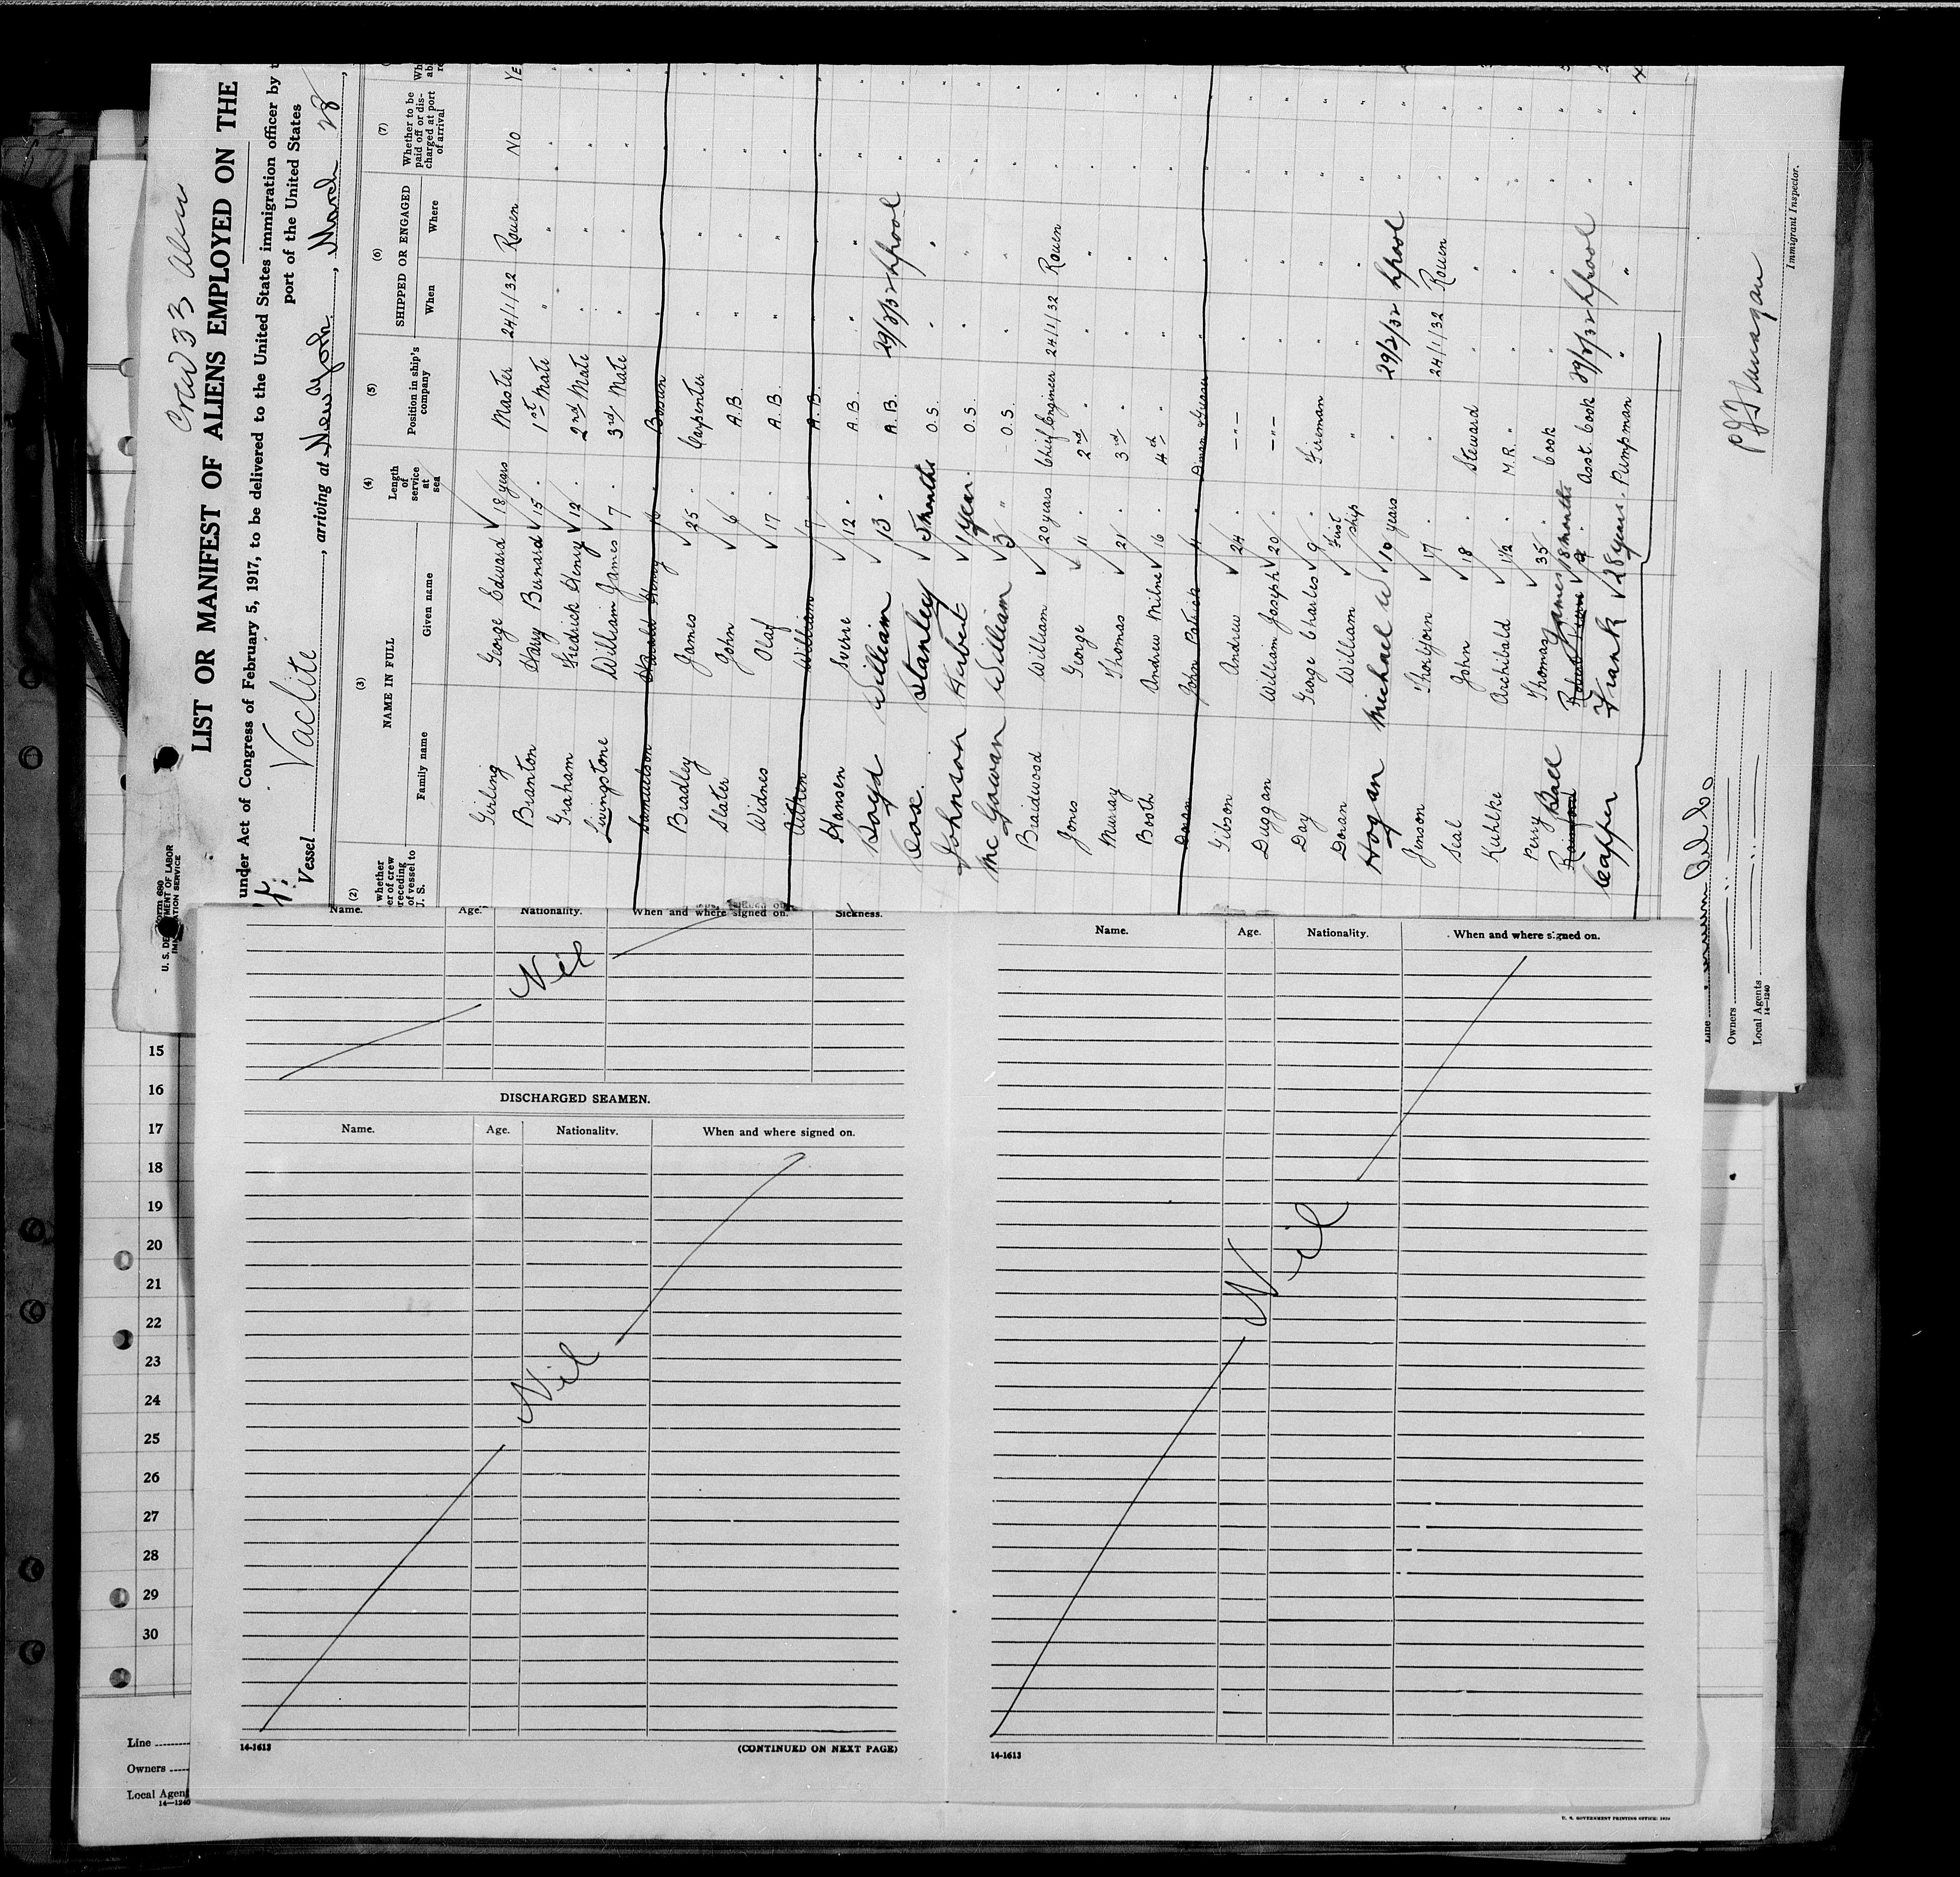 Crew 33
LIST OR MANIFEST OF ALIENS EMPLOYED ON THE
under Act of Congress of February 5, 1917, to be delivered to the United States immigration officer by
port of the United States
Vessel Vaclite, arriving at New York, March 28,
(2) (3) (4) (5) (6) (7)
NAME IN FULL
Family name Given name
Length of service at sea
Position in ship's company
SHIPPED OR ENGAGED
When Where
Whether to be paid off or discharged at port of arrival
Girling George Edward 18 years Master 24/1/32 Rouen No
Branton Harry Bernard 15 " 1st Mate " "
Graham Fredrick Henry 12 " 2nd Mate " "
Livingstone William James 7 " 3rd Mate " "
Samuelson Harold Henry Bosun " "
Bradley James 25 " Carpenter " "
Slater John 6 " A.B. " "
Widnes Olaf 17 " A.B. " "
Aitken William 7 A.B. " "
Hansen Sverre 12 " A.B. " "
Boyd William 13 " A.B. 29/2/32 Lpool
Cox Stanley 5 months O.S. " "
Johnson Herbert 1 year O.S. " "
McGowan William 3 " O.S. " "
Braidwood William 20 years Chief Engineer 24/1/32 Rouen
Jones George 11 " 2nd " " "
Murray Thomas 21 " 3rd " " "
Booth Andrew Milne 16 " 4th " " "
Doran John Patrick 4
Gibson Andrew 24 " —"—
Duggan William Joseph 20 " —"—
Day George Charles 9 " Fireman
Doran William First ship "
Hogan Michael W 10 years " 29/2/32 Lpool
Jenson Thorbjorn 17 " " 24/1/32 Rouen
Seal John 18 " Steward " "
Kuhlke Archibald 1½ " M.R. " " "
Perry Thomas 35 " Cook " "
Ball James 18 months Asst. Cook 29/2/32 Lpool
Capper Frank 28 years Pumpman " "
Line
Owners
Local Agents
14—1240
Immigrant Inspector.
Form 680
U. S. DEPARTMENT OF LABOR
IMMIGRATION SERVICE
Name. Age. Nationality. When and where signed on. Sickness.
Nil
DISCHARGED SEAMEN.
Name. Age. Nationality. When and where signed on.
Nil
14-1613 (CONTINUED ON NEXT PAGE)
Name. Age. Nationality. When and where signed on.
Nil
14-1613
15
16
17
18
19
20
21
22
23
24
25
26
27
28
29
30
Line
Owners
Local Agent
14—1240
U. S. GOVERNMENT PRINTING OFFICE: